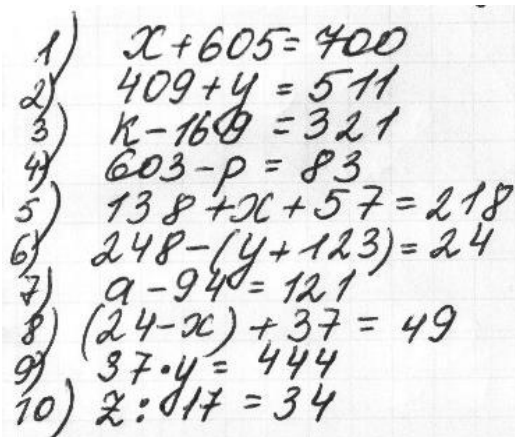 1) x+605=700
2) 409+y=511
3) к-169=321
4) 603-p=83
5) 138+x+57=218
6) 248-(y+123)=24
7) a-94=121
8) (24-x)+37=49
9) 37·y=444
10) z:17=34